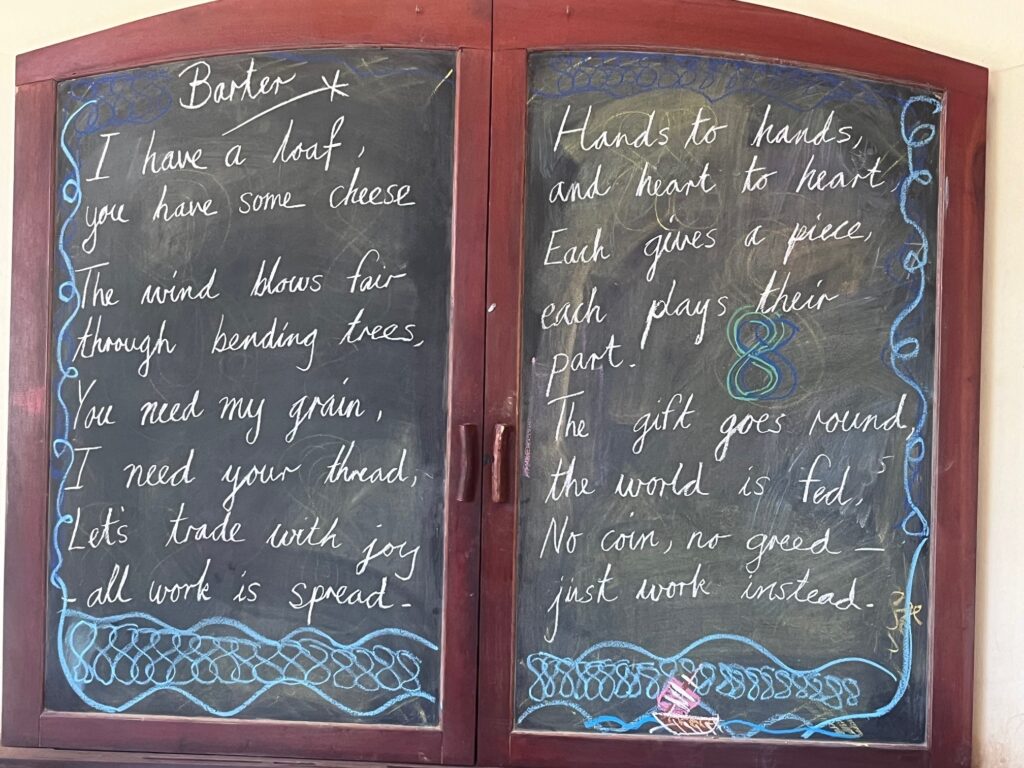 Barter
I have a loaf,
you have some cheese
The wind blows fair
through bending trees,
You need my grain,
I need your thread,
Let's trade with joy
- all work is spread -
Hands to hands,
and heart to heart,
Each gives a piece,
each plays their
part.
8
The gift goes round,
the world is fed,
No coin, no greed –
just work instead.